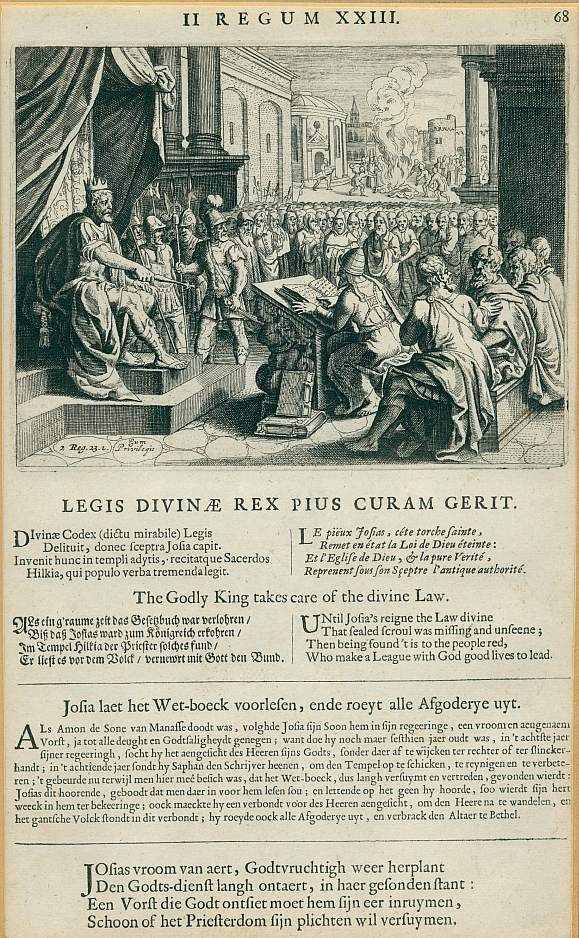 II REGUM XXIII.
68
2 Reg. 23. 2.
Cum
Privilegio
LEGIS DIVINÆ REX PIUS CURAM GERIT.
DIvinæ Codex (dictu mirabile) Legis
Delituit, donec sceptra Josia capit.
Invenit hunc in templi adytis, recitatque Sacerdos
Hilkia, qui populo verba tremenda legit.
LE pieux Josias, céte torche sainte,
Remet en état la Loi de Dieu éteinte:
Et l'Eglise de Dieu, & la pure Verité,
Reprenent sous son Sçeptre l'antique authorité.
The Godly King takes care of the divine Law.
ALs ein g'raume zeit das Gesetzbuch war verlohren /
Biß daß Josias ward zum Königreich erkohren /
Im Tempel Hilkia der Priester solches fund /
Er liest es vor dem Volck / vernewrt mit Gott den Bund.
UNtil Josia's reigne the Law divine
That sealed scroul was missing and unseene;
Then being found 't is to the people red,
Who make a League with God good lives to lead.
Josia laet het Wet-boeck voorlesen, ende roeyt alle Afgoderye uyt.
ALs Amon de Sone van Manasse doodt was, volghde Josia sijn Soon hem in sijn regeeringe, een vroom en aengenaem
Vorst, ja tot alle deught en Godtsaligheydt genegen; want doe hy noch maer sesthien jaer oudt was, in 't achtste jaer
sijner regeeringh, socht hy het aengesicht des Heeren sijns Godts, sonder daer af te wijcken ter rechter of ter slincker-
handt; in 't achtiende jaer sondt hy Saphan den Schrijver heenen, om den Tempel op te schicken, te reynigen en te verbete-
ren; 't gebeurde nu terwijl men hier meé besich was, dat het Wet-boeck, dus langh versuymt en vertreden, gevonden wierdt:
Josias dit hoorende, geboodt dat men daer in voor hem lesen sou; en lettende op het geen hy hoorde, soo wierdt sijn hert
weeck in hem ter bekeeringe; oock maeckte hy een verbondt voor des Heeren aengesicht, om den Heere na te wandelen, en
het gantsche Volck stondt in dit verbondt; hy roeyde oock alle Afgoderye uyt, en verbrack den Altaer te Bethel.
JOsias vroom van aert, Godtvruchtigh weer herplant
Den Godts-dienst langh ontaert, in haer gesonden stant:
Een Vorst die Godt ontsiet moet hem sijn eer inruymen,
Schoon of het Priesterdom sijn plichten wil versuymen.